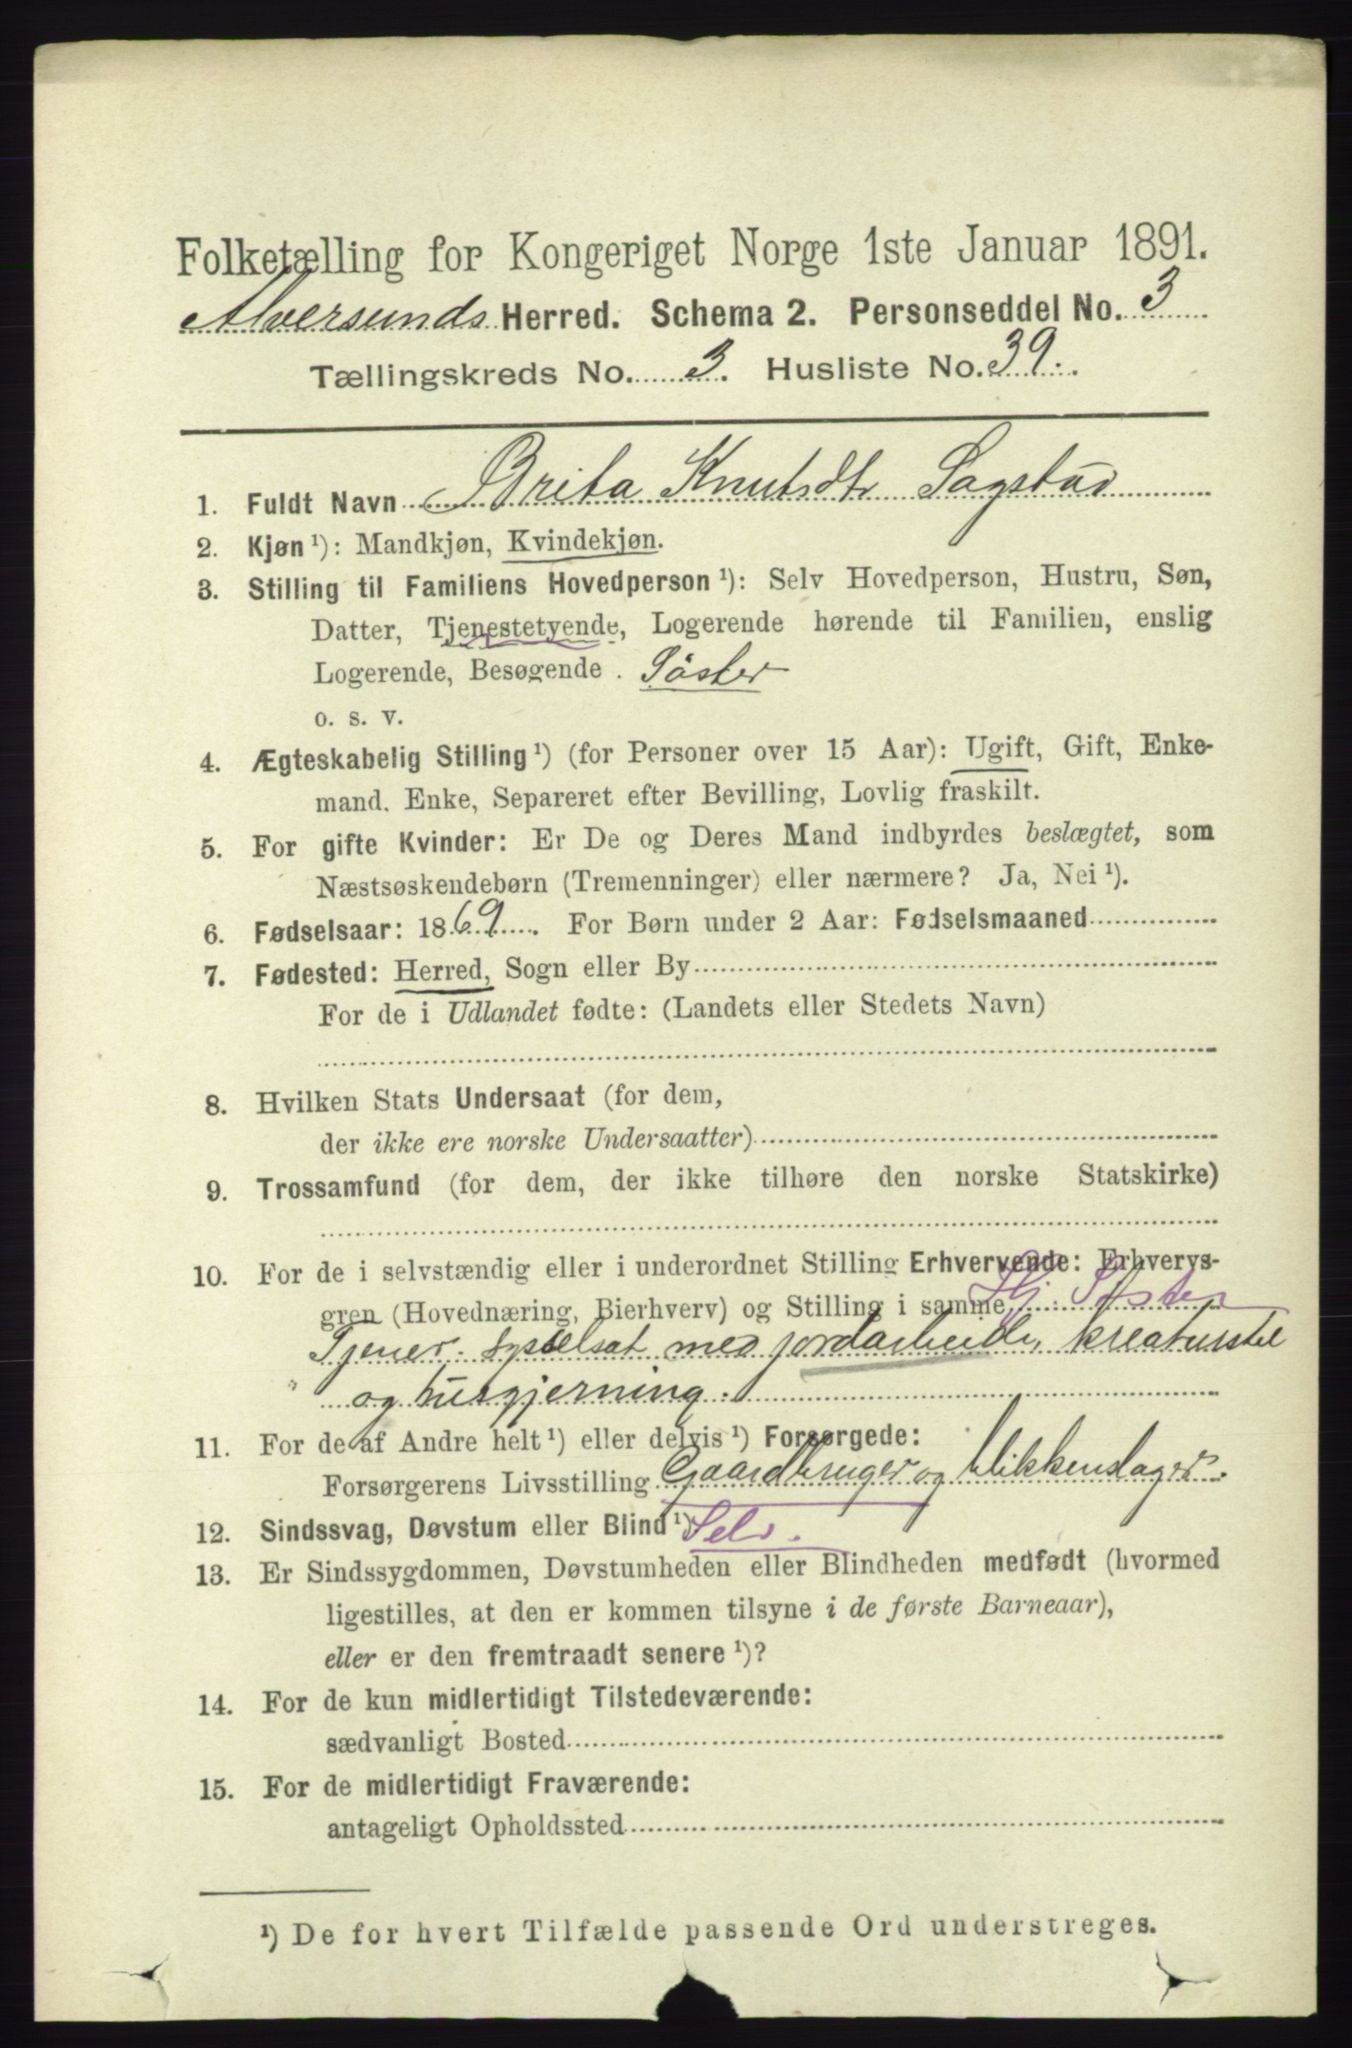 Folketælling for Kongeriget Norge 1ste Januar 1891.
Alversunds Herred. Schema 2. Personseddel No. 3
Tællingskreds No. 3. Husliste No. 39.
1. Fuldt Navn Brita Knutsdtr Sagstad
2. Kjøn ¹): Mandkjøn, Kvindekjøn.
3. Stilling til Familiens Hovedperson ¹): Selv Hovedperson, Hustru, Søn,
Datter, Tjenestetyende, Logerende hørende til Familien, enslig
Logerende, Besøgende . Søster
o. s. v.
4. Ægteskabelig Stilling ¹) (for Personer over 15 Aar): Ugift, Gift, Enke-
mand. Enke, Separeret efter Bevilling, Lovlig fraskilt.
5. For gifte Kvinder: Er De og Deres Mand indbyrdes beslægtet, som
Næstsøskendebørn (Tremenninger) eller nærmere? Ja, Nei ¹).
6. Fødselsaar: 1869. For Børn under 2 Aar: Fødselsmaaned
7. Fødested: Herred, Sogn eller By
For de i Udlandet fødte: (Landets eller Stedets Navn)
8. Hvilken Stats Undersaat (for dem,
der ikke ere norske Undersaatter)
9. Trossamfund (for dem, der ikke tilhøre den norske Statskirke)
10. For de i selvstændig eller i underordnet Stilling Erhvervende: Erhvervs-
gren (Hovednæring, Bierhverv) og Stilling i samme Hj. Søster
Tjener. sysselsat med jordarbeide, kreaturstel
og husgjerning.
11. For de af Andre helt ¹) eller delvis ¹) Forsørgede:
Forsørgerens Livsstilling Gaardbruger og blikkenslager.
12. Sindssvag, Døvstum eller Blind ¹) Selv.
13. Er Sindssygdommen, Døvstumheden eller Blindheden medfødt (hvormed
ligestilles, at den er kommen tilsyne i de første Barneaar),
eller er den fremtraadt senere ¹)?
14. For de kun midlertidigt Tilstedeværende:
sædvanligt Bosted
15. For de midlertidigt Fraværende:
antageligt Opholdssted
¹) De for hvert Tilfælde passende Ord understreges.